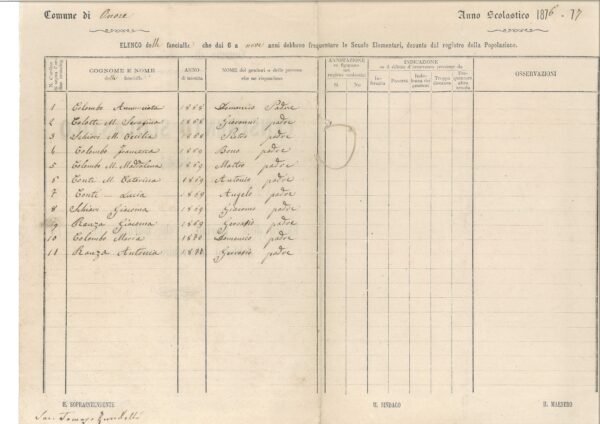 Comune di Onore Anno Scolastico 1876-77
ELENCO delle fanciulle che dai 6 a nove anni debbono frequentare le Scuole Elementari, desunto dal registro della Popolazione.
COGNOME E NOME delle fanciulle
ANNO di nascita
NOME dei genitori o delle persone che ne rispondono
ANNOTAZIONE se figurano nel registro scolastico
Sì No
INDICAZIONE se il difetto d'istruzione proviene da
Povertà
OSSERVAZIONI
1 Colombo Annunciata 1868 Domenico Padre
2 Colotti M. Serafina 1868 Giovanni padre
3 Schiavi M. Cecilia 1868 Pietro padre
4 Colombo Francesca 1869 Bono padre
5 Colombo M. Maddalena 1869 Matteo padre
6 Conti M. Caterina 1869 Antonio padre
7 Conti Lucia 1869 Angelo padre
8 Schiavi Giacoma 1869 Giacomo padre
9 Ranza Giacoma 1869 Gervasio padre
10 Colombo Maria 1870 Domenico padre
11 Ranza Antonia 1870 Gervasio padre
IL SOPRAINTENDENTE IL SINDACO IL MAESTRO